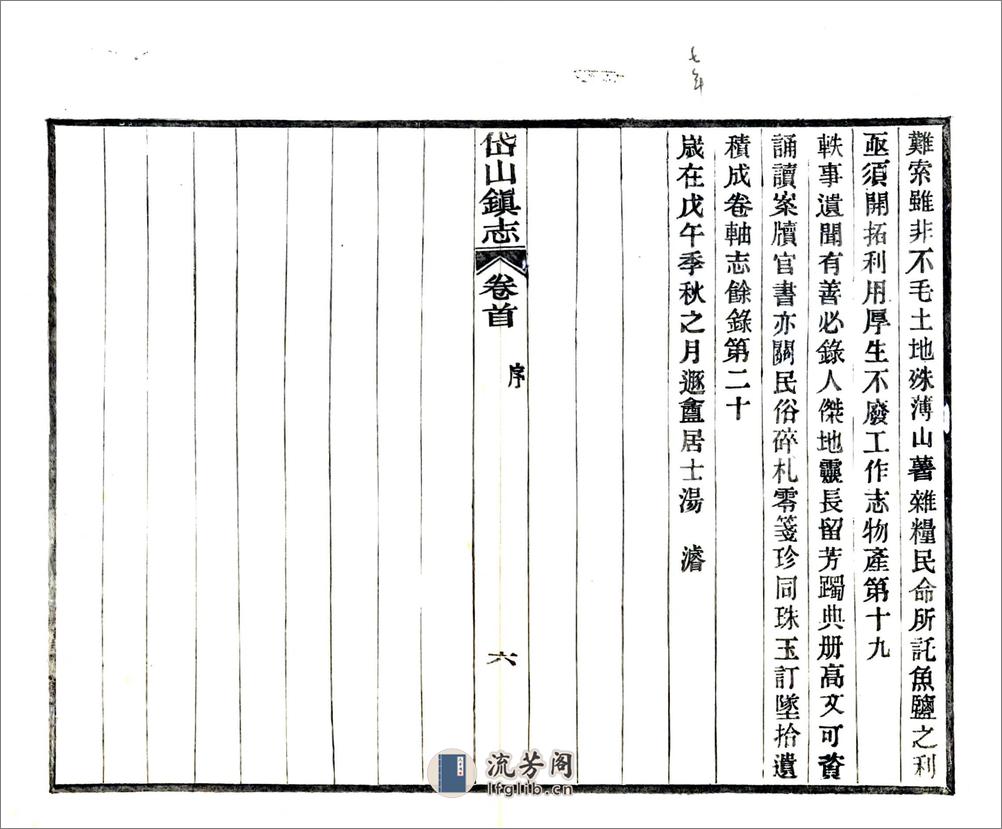 七年
難索雖非不毛土地殊薄山薯雜糧民命所託魚鹽之利
亟須開拓利用厚生不廢工作志物產第十九
軼事遺聞有善必錄人傑地靈長留芳躅典册高文可資
誦讀案牘官書亦關民俗碎札零箋珍同珠玉訂墜拾遺
積成卷軸志餘錄第二十
歲在戊午季秋之月遯盦居士湯　濬
岱山鎮志
卷首
序
六
流芳阁
lfglib.cn